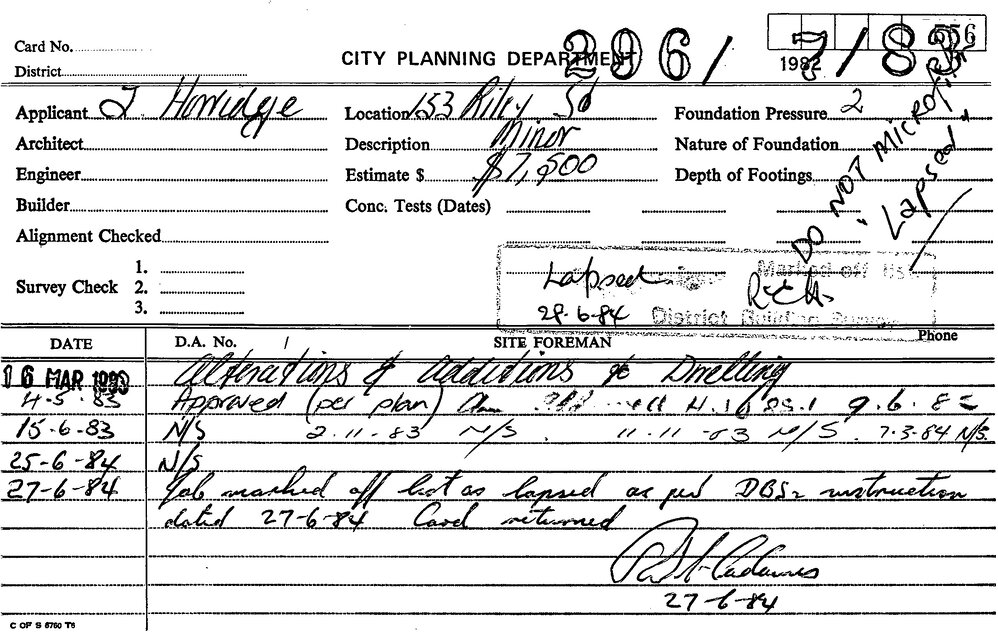 Card No.
District
CITY PLANNING DEPARTMENT
296/7/83
556
1982
Applicant J. Horridge
Location 153 Riley St
Foundation Pressure 2
Architect
Description Minor
Nature of Foundation
Engineer
Estimate $ $7,500
Depth of Footings
Builder
Conc. Tests (Dates)
Alignment Checked
DO NOT MICROFILM
"Lapsed"
Survey Check
1.
2.
3.
Lapsed
28-6-84
Marked off list
District Building Surveyor
DATE
D.A. No. /
SITE FOREMAN
Phone
16 MAR 1983 Alterations & additions to Dwelling
4.5.83 Approved (per plan)
15-6-83 N/S 2-11-83 N/S. 11-11-83 N/S. 7-3-84 N/S.
25-6-84 N/S
27-6-84 Job marked off list as lapsed as per DBS2 instruction
dated 27-6-84 Card returned
27-6-84
C OF S 5760 T6